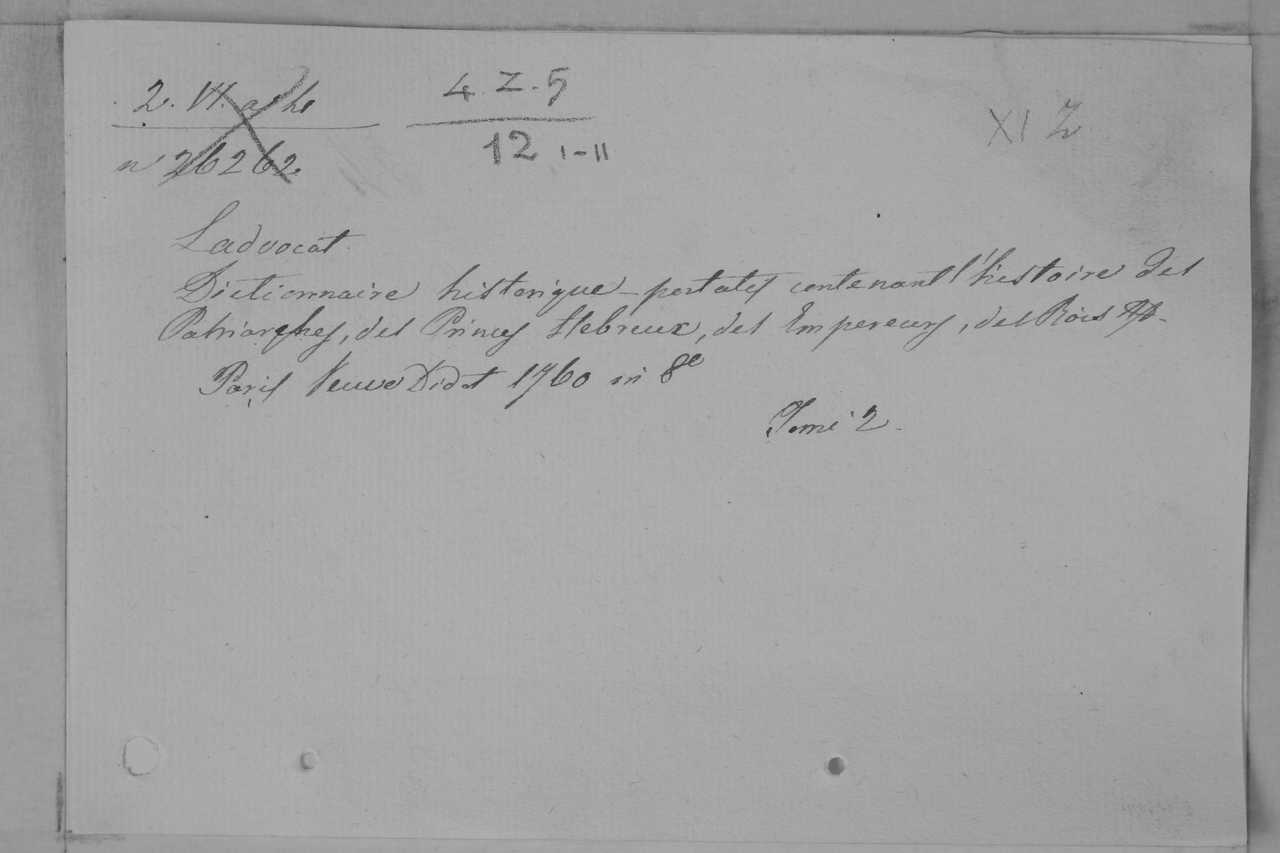 2. VI.
n 26262
4. Z. 5
12 I-II
XI Z
Ladvocat
Dictionnaire historique-portatif contenant l'histoire des
Patriarches, des Princes Hebreux, des Empereurs, des Rois
Paris Veuve Didot 1760 in 8º
Tome 2.